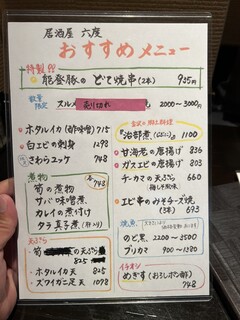 居酒屋 六度
おすすめメニュー
特製!!
能登豚の どて焼串(2本) 935円
数量限定 スルメ 売切れ 2000〜3000円
ホタルイカ(酢味噌) 715
白エビの刺身 1298
さわらユッケ 748
煮物 各748
筍の煮物
サバ味噌煮
カレイの煮付け
タラ真子煮
あぶら
筍 の天ぷら 825
ホタルイカ天 825
ズワイガニ天 1098
『治部煮』 1100
甘海老の唐揚げ 836
ガスエビの唐揚げ 803
チーカマの天ぷら 660
梅しそ風味
エビ串のみそチーズ焼(3本) 693
焼魚
のど黒 2200〜3500
ブリカマ 900〜1380
イチオシ
めぎす(おろしポン酢) 748